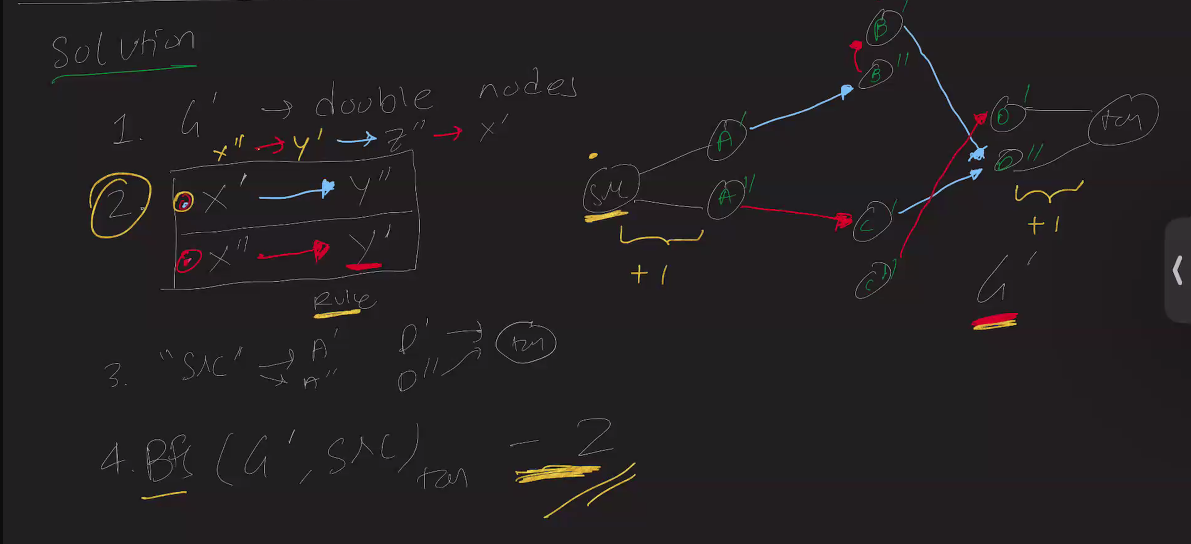 Solution
1. G' → double nodes
x'' → Y' → Z'' → X'
2. X' → Y''
X'' → Y'
Rule
3. "src" → A' D' → tar
→ A'' D''
4. Bfs (G', src) tar - 2
B'
B''
A'
src
A''
C'
C''
D'
D''
tar
+1
+1
G'